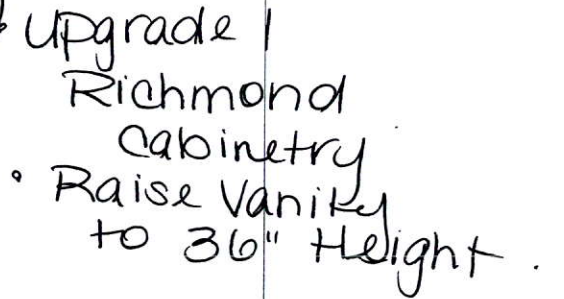 • Upgrade 1
Richmond
Cabinetry
• Raise Vanity
to 36" Height.